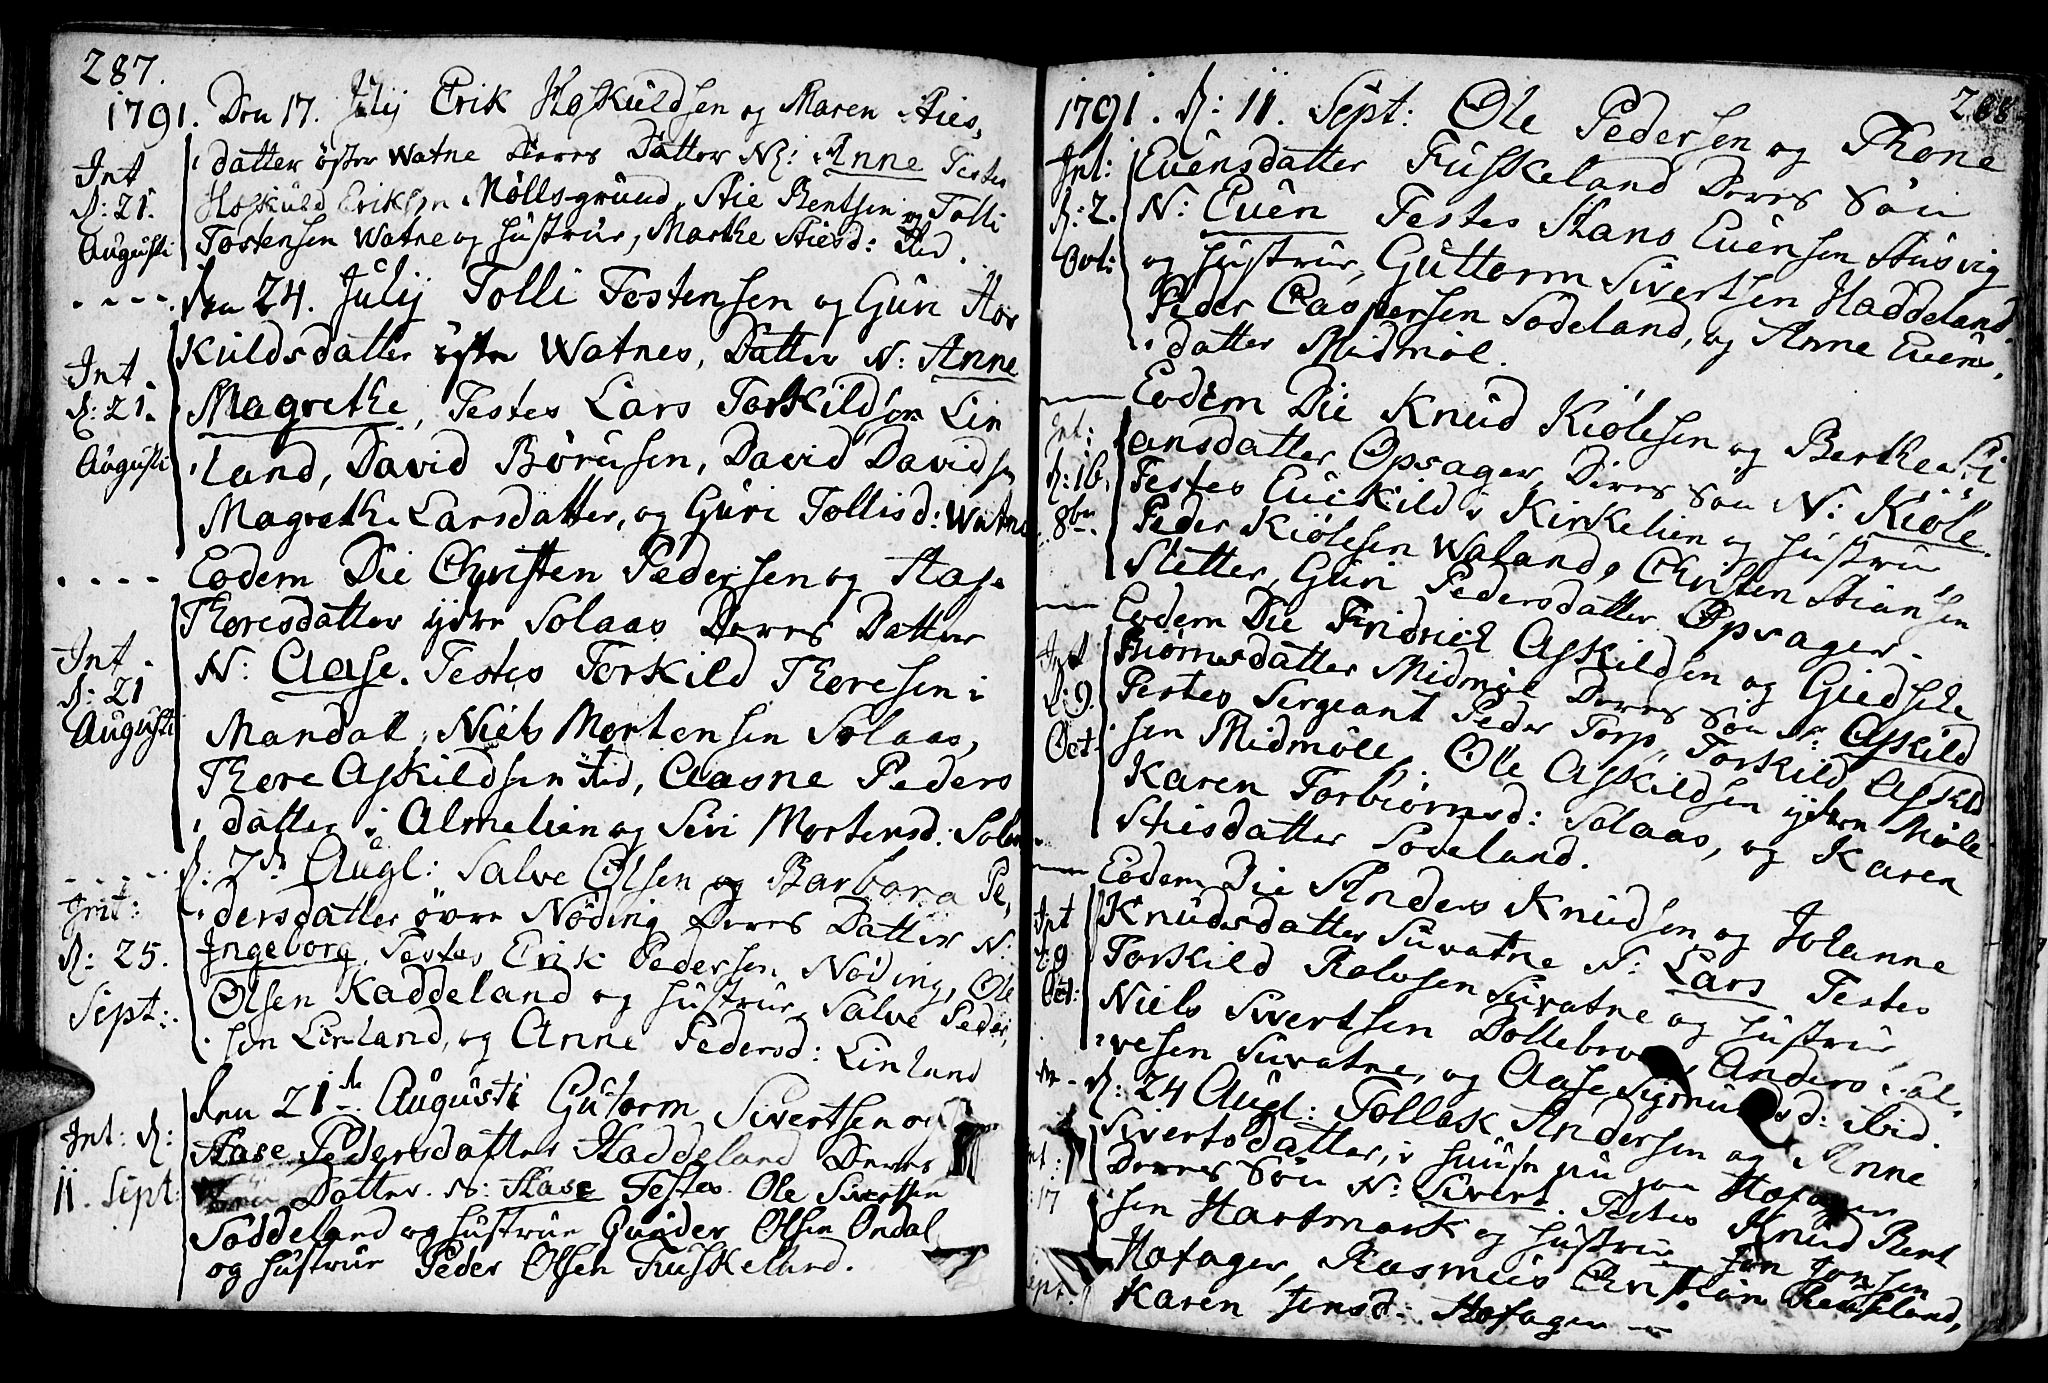 287.
1791. Den 17. Julij Erik Hoskuldsen og Maren Sties,
Int
d: 21.
Augusti
datter öster Watne Deres Datter N: Anne Testes
Hoskuld Eriksen Möllsgrund, Stie Bentsen og Tolli
Tostensen Watne og hustrue, Marthe Stiesd: ibid.
Den 24. Julij Tolli Tostensen og Guri Hos
Int
d: 21.
Augusti
kuldsdatter östre Watnes, Datter N: Anne
Magrethe, Testes Lars Torkildsen Lin
land, David Börusen, David Davidsen
Magrethe Larsdatter, og Guri Tollisd: Watne
Eodem Die Christen Pedersen og Aase
Int.
d: 21
Augusti
Thoresdatter ydre Solaas Deres Datter
N: Aase. Testes Torkild Thoresen i
Mandal, Niels Mortensen Solaas,
Thore Askildsen ibid, Aasne Peders
datter i Almelien og Siri Mortensd: Solaas
d: 7de Augl: Salve Olsen og Barbora Pe,
Int:
d: 25.
Sept:
dersdatter övre Nöding Deres Datter N:
Ingeborg. Testes Erik Pedersen Nöding, Ole
Olsen Kaddeland og hustrue, Salve Peder,
sen Linland, og Anne Pedersd: Linland
Den 21de Augusti Gutorm Sivertsen og
Int: d:
11. Sept:
Aase Pedersdatter Haddeland Deres
Datter N: Aase Testes Ole Sivertsen
Soddeland og hustrue Gunder Olsen Ondal
og hustrue Peder Olsen Fuskeland.
288
1791. d: 11. Sept: Ole Pedersen og Thone
Int:
d: 2.
Oct:
Evensdatter Fuskeland Deres Sön
N: Even Testes Hans Evensen Stusvig
og hustrue, Guttorm Sivertsen Haddeland
Peder Caspersen Sodeland, og Anne Evens,
datter Midmöl.
Eodem Die Knud Kiölesen og Berthe Sti
Int:
d: 16.
8br.
ansdatter Opsager Deres Sön N: Kiöle.
Testes Euskild i Kirkelien og hustrue
Peder Kiölesen Waland, Christen Stiansen
Sletter, Guri Pedersdatter Opsager.
Eodem Die Fridrich Askildsen og Giedske
Int
d: 9.
Oct:
Biörnsdatter Midmöl Deres Sön N: Askild
Testes Sergeant Peder Torp, Torkild Askild
sen Midmöle, Ole Askildsen ydern Möle
Karen Torbiörnsd: Solaas, og Karen
Stiesdatter Sodeland.
Eodem Die Anders Knudsen og Johanne
Int
d: 9
Oct:
Knudsdatter Suvatne N: Lars Testes
Torkild Rolvsen Suvatne og hustrue,
Niels Sivertsen Dollebroe, Anders Sal,
vesen Suvatne, og Aase Sigmundsd: ibid.
d: 24 Augl: Tollak Andersen og Anne
Int:
d: 17
Sept:
Sivertsdatter, i huuse nu paa Hofager
Deres Sön N: Sivert. Testes Knud Bent
sen Hartmark og hustrue Jon Jonsen
Hofager, Rasmus Christian
Karen Jensd: Hofager